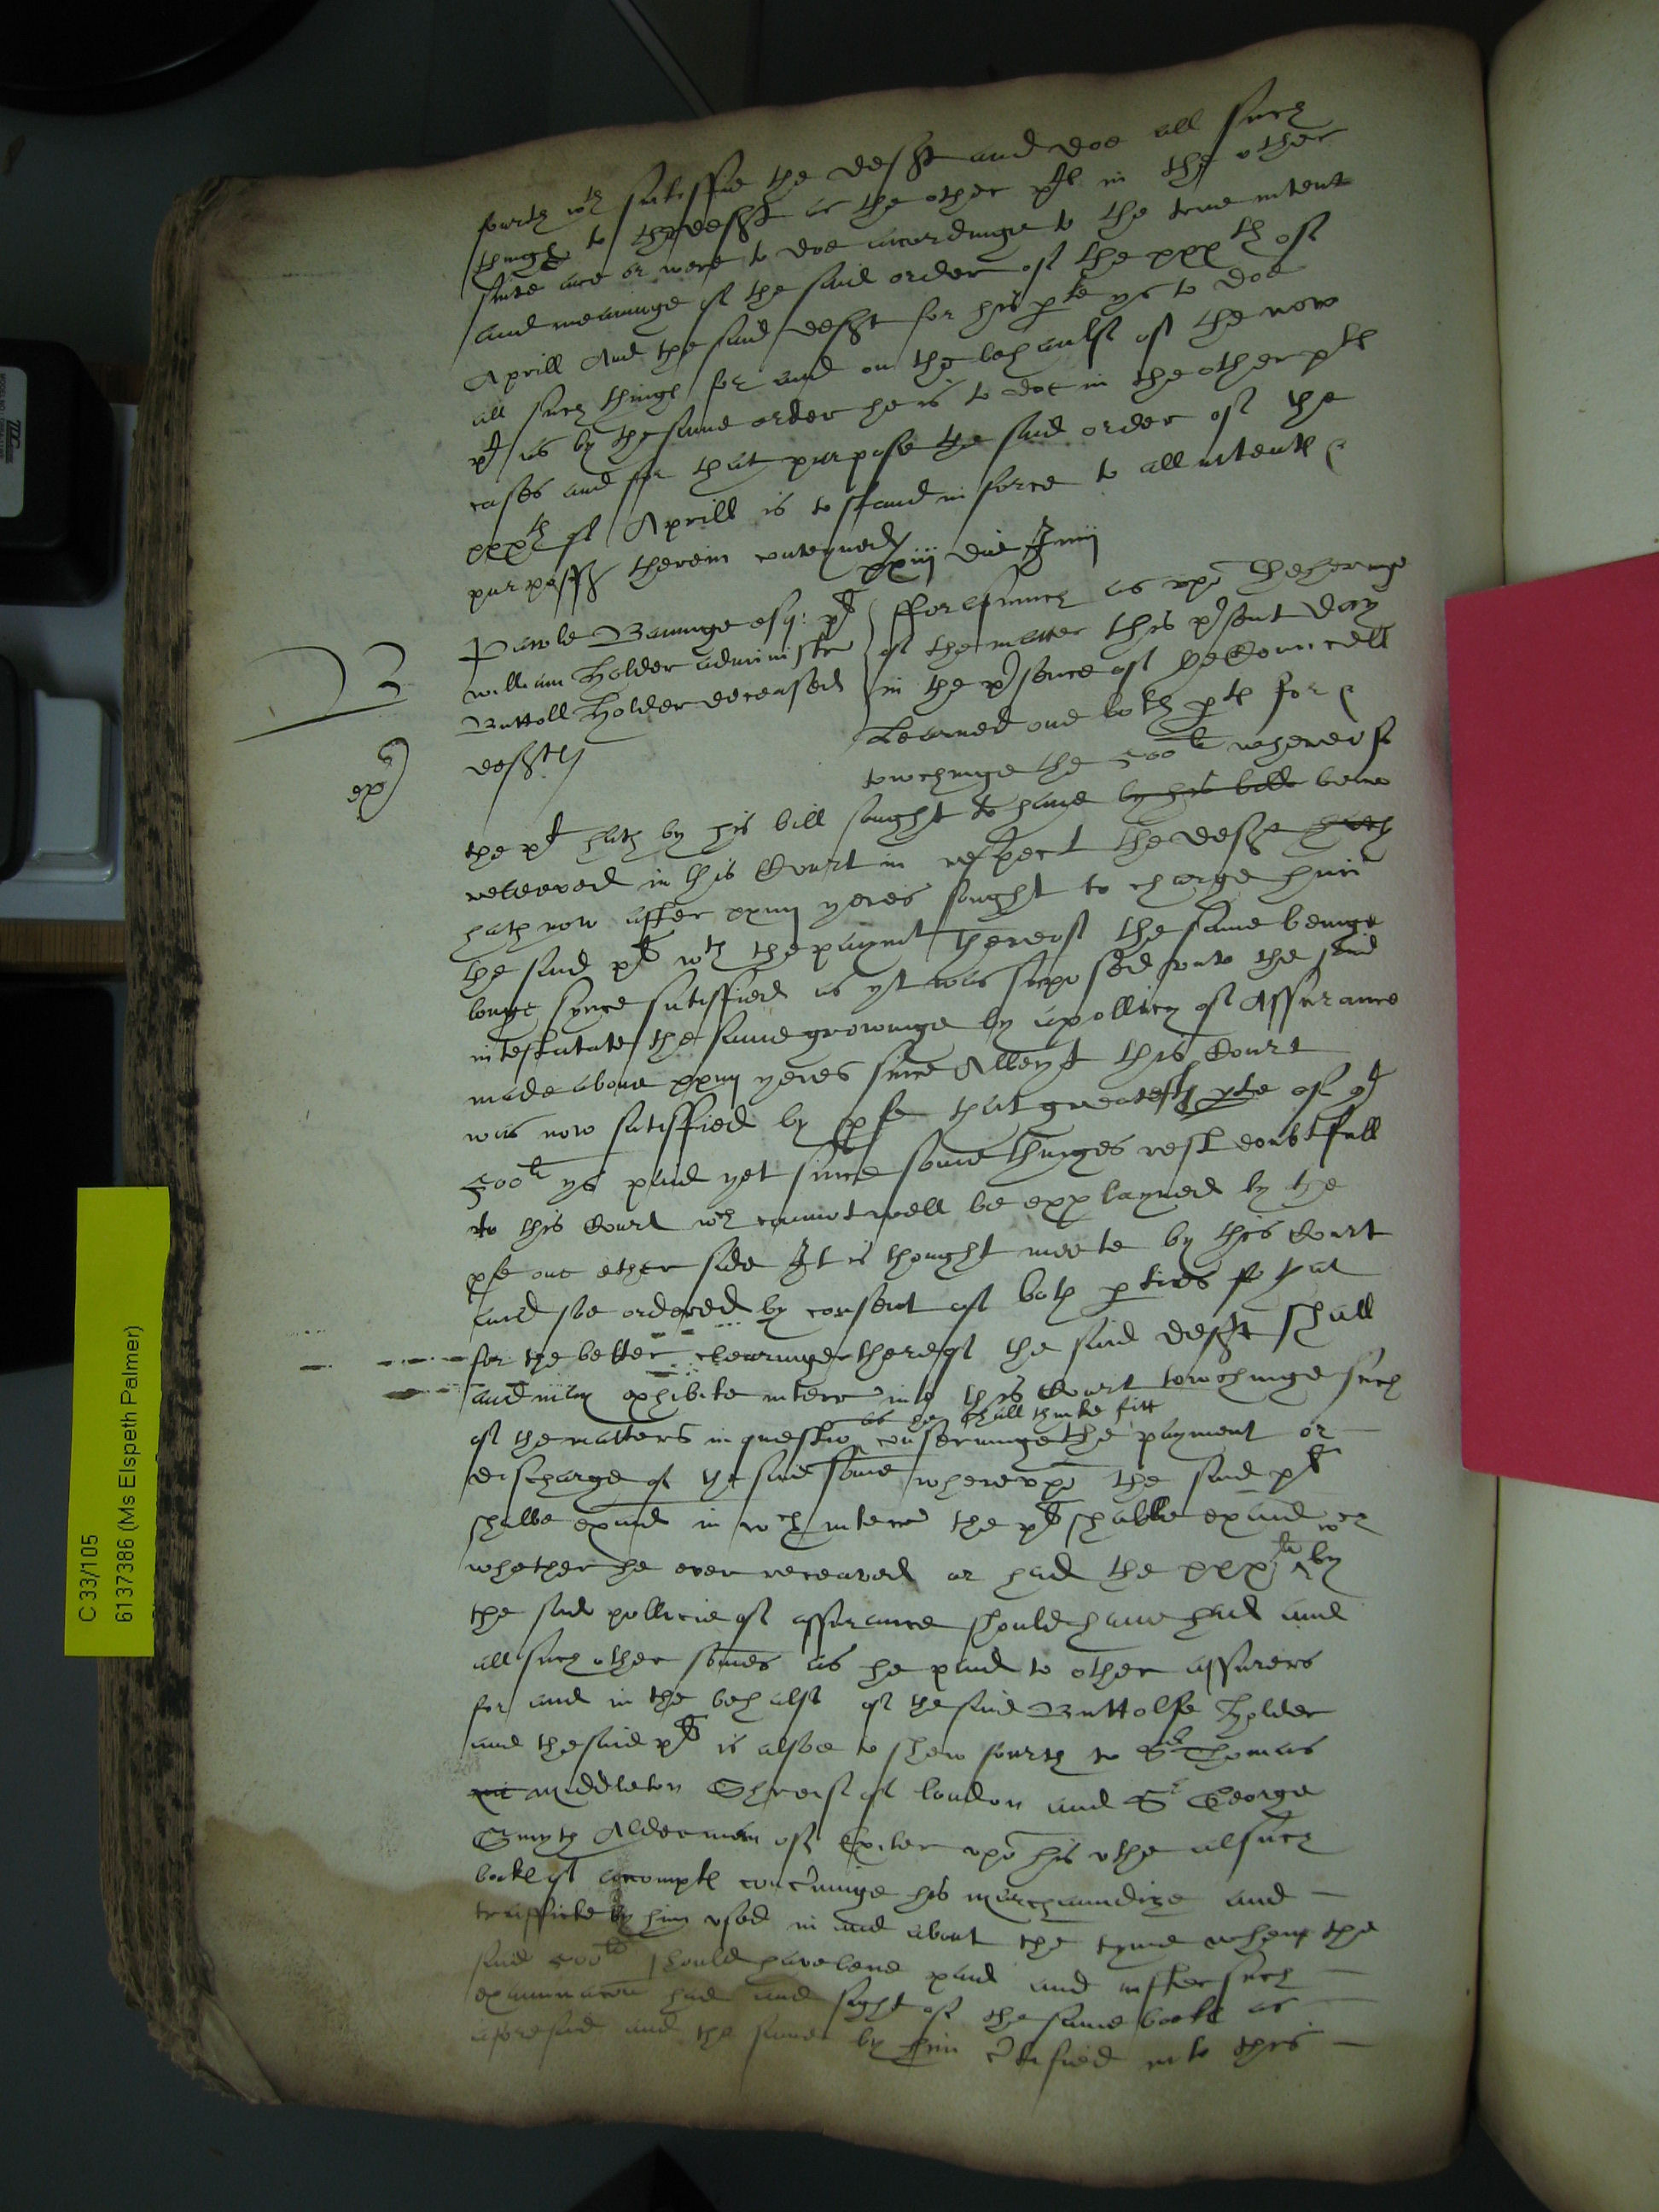 fourth wth satisfie the deft and doe all such
things to the deft as the other pls in the other
suite are or were to doe accordinge to the true intent
and meaninge of the said order of the xxxth of
Aprill And the said deft for his pte ys to doe
all such things for and on the behaulf of the now
pl as by the same order he is to doe in the other pls
cases and for that purpose the said order of the
xxxth of Aprill is to stand in force to all intents &
purposes therein conteyned
xxiij die Junij
Pawle Banninge esq: pl
William Holder administr
Buttoll Holder deceased
deft
fforasmuch as upō the heringe
of the matter this p̄sent day
in the p̄sence of ye Councell
Learned one both pts for &
towchinge the 500li whereof
the pl hath by his bill sought to have by his bill bene
releeved in this Court in respect the deft hath
hath now after xxiiij yeres sought to charge him
the said pl wth the paymt thereof the same beinge
longe synce satisfied as yt was supposed unto the said
intestatate the same growinge by a pollicy of Assurance
made above xxiiij yeres since Albeyt this Court
was now satisfied by pfe that greatest pte of ye
500li ys paid yet since some thinges rest doubtfull
to this Court wch cannot well be explayned by the
pfe one ether side It is thought meete by this Court
and soe ordered by consent of both parties that
for the better clearinge thereof the said deft shall
and may exhibite interr into this Court towchinge such
of the matters in questiō as he shall thinke fitt conserninge the payment or
discharge of the said some whereupō the said pl
shalbe exaıd in wch interr the pl shalbe exaıd
whether he ever receaved or had the xxxli wch by
the said pollicie of assurance should have had and
all such other somes as he paid to other assurers
for and in the behalf of the said Buttolfe Holder
and the said pl is alsoe to shew fourth to Sr Thomas
Middleton Shreif of London and Sr George
Smyth Alderman of Exiter upō his othe all such
books of accompts conc̄ninge his merchaundize and
trafficke by him used in and about the tyme when the
said 500li should have bene paid and after such
examinacōn had and sight of the same books as
aforesaid and the same by him c̄tified into this
ex
C 33/105
6137386 (Ms Elspeth Palmer)